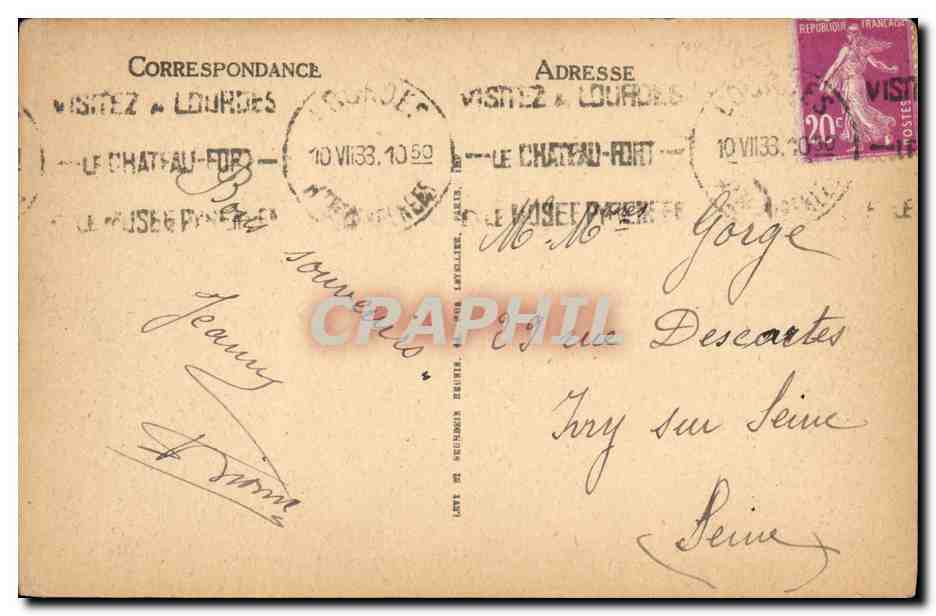 CORRESPONDANCE
ADRESSE
REPUBLIQUE FRANÇAISE
20c
POSTES
VISITEZ A LOURDES
LE CHATEAU-FORT
LE MUSEE PYRENEEN
LOURDES
10 VII 33. 10 50
VISITEZ A LOURDES
LE CHATEAU-FORT
LE MUSEE PYRENEEN
LOURDES
10 VII 33. 10 50
VISITEZ
LE
LE
Bons
souvenirs
Jeanne
M. Mme Gorge
29 rue Descartes
Ivry sur Seine
(Seine)
LEVY ET NEURDEIN REUNIS, 44 RUE LETELLIER, PARIS, IMP
CRAPHIL